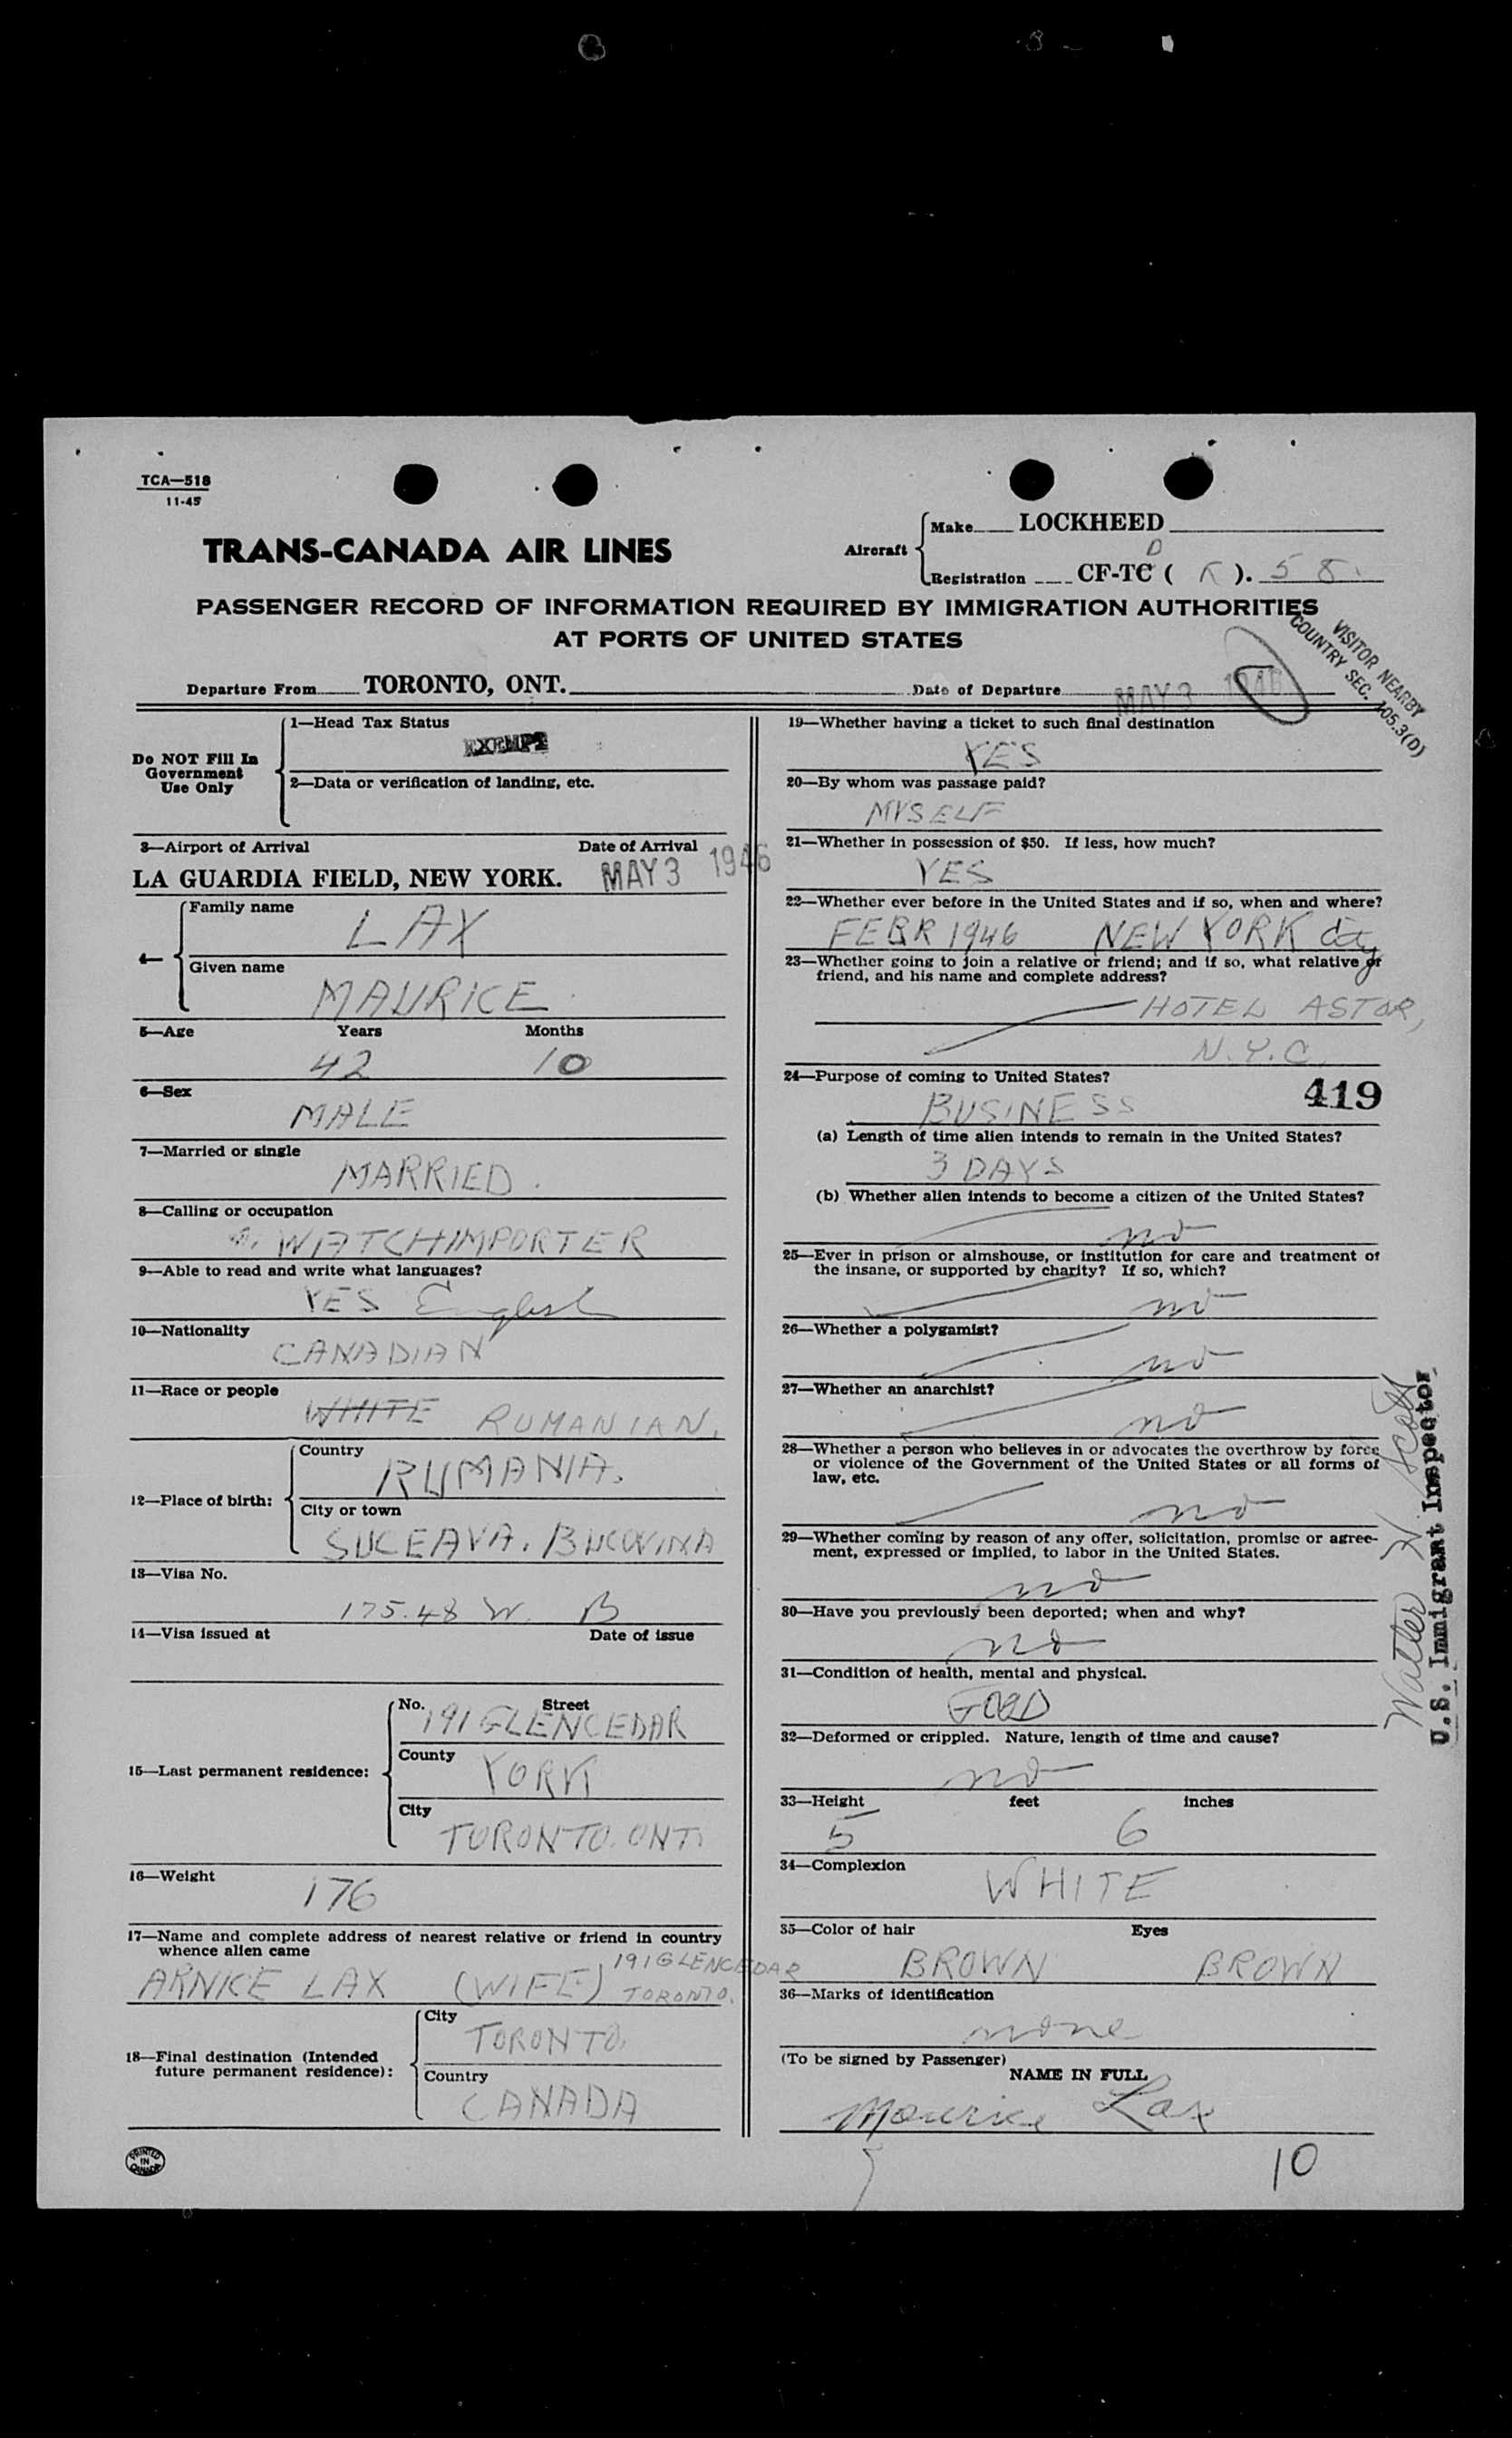 TCA—518
11-45
TRANS-CANADA AIR LINES
Aircraft
Make LOCKHEED
Registration CF-TC D ( K ). 58.
PASSENGER RECORD OF INFORMATION REQUIRED BY IMMIGRATION AUTHORITIES
AT PORTS OF UNITED STATES
VISITOR NEARBY
COUNTRY SEC. 105.3(D)
Departure From TORONTO, ONT. Date of Departure MAY 3 1946
Do NOT Fill In
Government
Use Only
1—Head Tax Status
EXEMPT
2—Data or verification of landing, etc.
3—Airport of Arrival Date of Arrival
LA GUARDIA FIELD, NEW YORK. MAY 3 1946
4—
Family name
LAX
Given name
MAURICE
5—Age Years Months
42 10
6—Sex
MALE
7—Married or single
MARRIED.
8—Calling or occupation
WATCHIMPORTER
9—Able to read and write what languages?
YES English
10—Nationality
CANADIAN
11—Race or people
WHITE RUMANIAN.
12—Place of birth:
Country
RUMANIA.
City or town
SUCEAVA. BUCOVINA
13—Visa No.
175.48 W. B
14—Visa issued at Date of issue
15—Last permanent residence:
No. Street
191 GLENCEDAR
County
YORK
City
TORONTO. ONT.
16—Weight
176
17—Name and complete address of nearest relative or friend in country
whence alien came
191 GLENCEDAR
ARNKE LAX (WIFE) TORONTO.
18—Final destination (Intended
future permanent residence):
City
TORONTO.
Country
CANADA
PRINTED
IN
CANADA
19—Whether having a ticket to such final destination
YES
20—By whom was passage paid?
MYSELF
21—Whether in possession of $50. If less, how much?
YES
22—Whether ever before in the United States and if so, when and where?
FEBR 1946 NEW YORK City
23—Whether going to join a relative or friend; and if so, what relative or
friend, and his name and complete address?
HOTEL ASTOR,
N.Y.C.
24—Purpose of coming to United States?
BUSINESS
419
(a) Length of time alien intends to remain in the United States?
3 DAYS
(b) Whether alien intends to become a citizen of the United States?
no
25—Ever in prison or almshouse, or institution for care and treatment of
the insane, or supported by charity? If so, which?
no
26—Whether a polygamist?
no
27—Whether an anarchist?
no
28—Whether a person who believes in or advocates the overthrow by force
or violence of the Government of the United States or all forms of
law, etc.
no
29—Whether coming by reason of any offer, solicitation, promise or agree-
ment, expressed or implied, to labor in the United States.
no
30—Have you previously been deported; when and why?
no
31—Condition of health, mental and physical.
GOOD
32—Deformed or crippled. Nature, length of time and cause?
no
33—Height feet inches
5 6
34—Complexion
WHITE
35—Color of hair Eyes
BROWN BROWN
36—Marks of identification
none
(To be signed by Passenger)
NAME IN FULL
Maurice Lax
10
Walter H Scott
U.S. Immigrant Inspector